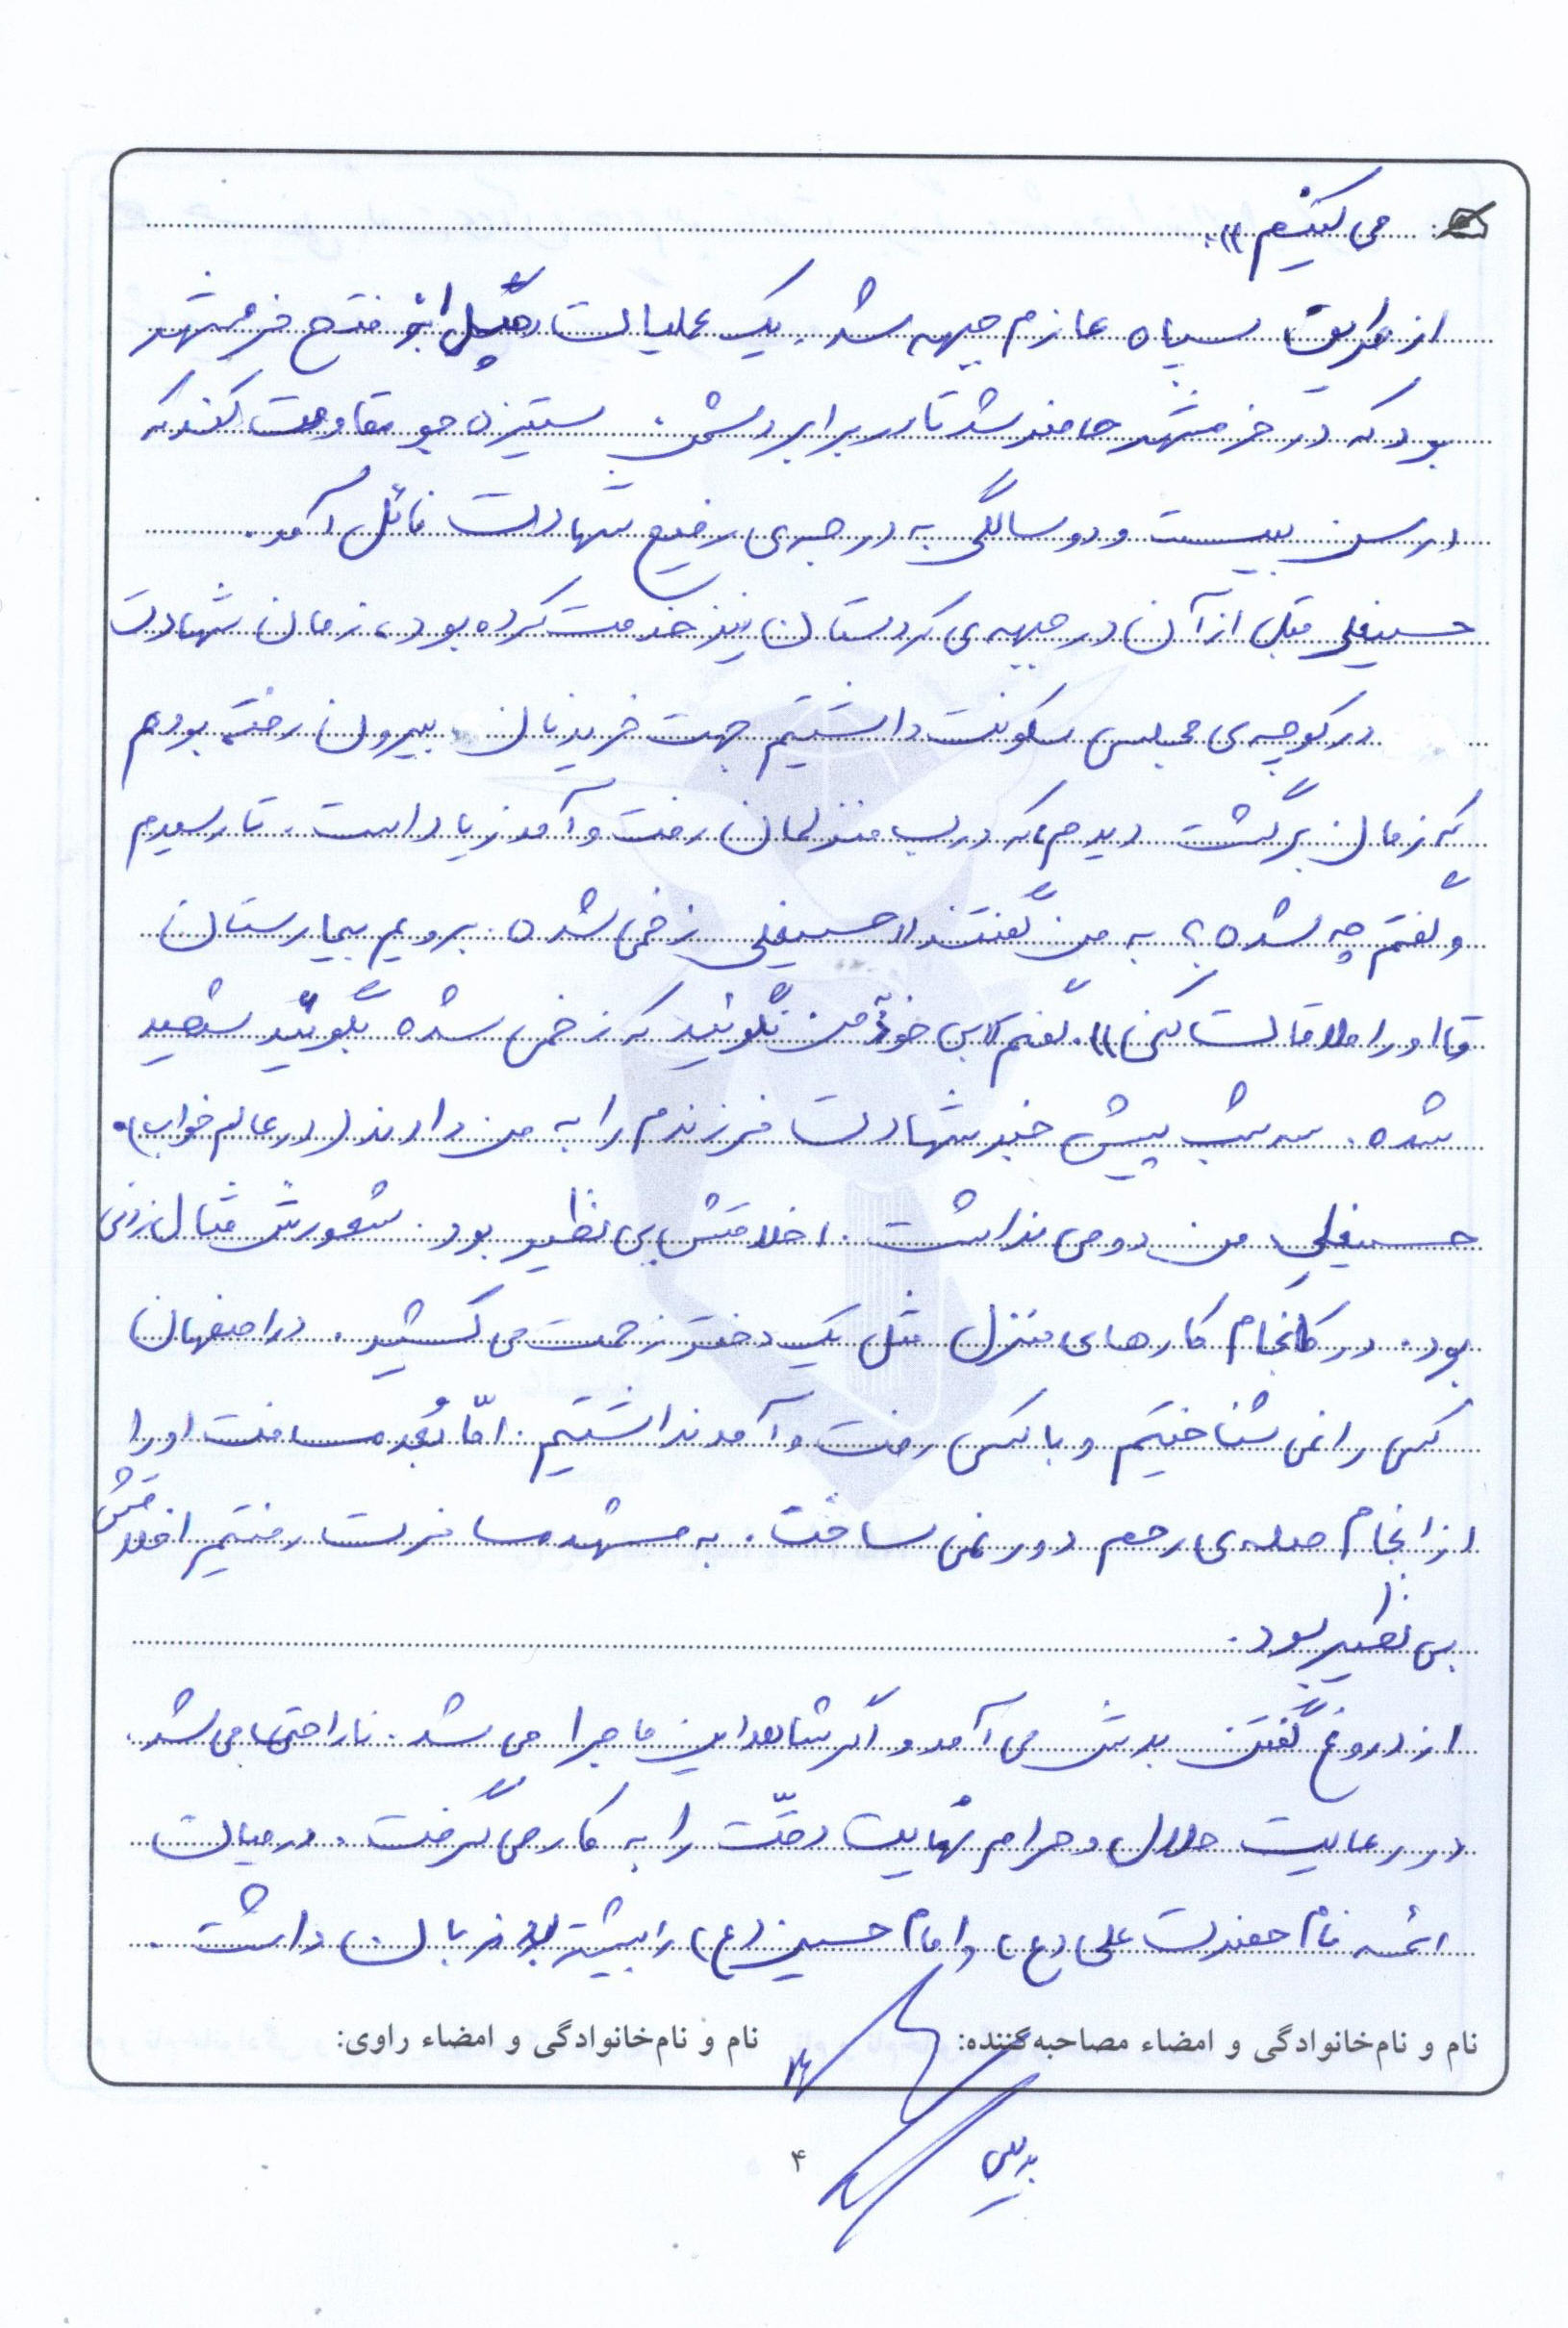 می کشیم».
از طریق سپاه عازم جبهه شد. یک عملیات قبل از فتح خرمشهر
بود که در خرمشهر حاضر شد تا در برابر دشمن ستیزه جو مقاومت کند که
در سن بیست و دو سالگی به درجه ی رفیع شهادت نائل آمد.
حسینعلی قبل از آن در جبهه ی کردستان نیز خدمت کرده بود، زمان شهادت
در کوچه ی مجلسی سکونت داشتیم جهت خرید نان بیرون رفته بودم
که زمان برگشت دیدم که درب منزلمان رفت و آمد زیاد است. تا رسیدم
و گفتم چه شده؟ به من گفتند «حسینعلی زخمی شده. برویم بیمارستان
تا او را ملاقات کنی». گفتم بی خود به من نگوئید که زخمی شده بگوئید شهید
شده. سه شب پیش خبر شهادت فرزندم را به من دادند (در عالم خواب).
حسینعلی من دومی نداشت. اخلاقش بی نظیر بود. شعورش مثال زدنی
بود. در انجام کارهای منزل مثل یک دختر زحمت می کشید. در اصفهان
کسی را نمی شناختیم و با کسی رفت و آمد نداشتیم. امّا بُعد مسافت او را
از انجام صله ی رحم دور نمی ساخت. به مشهد مسافرت رفتیم اخلاقش
بی نظیر بود.
از دروغ گفتن بدش می آمد و اگر شاهد این ماجرا می شد. ناراحت می شد.
در رعایت حلال و حرام نهایت دقّت را به کار می گرفت. در میان
ائمه نام حضرت علی (ع) و امام حسین (ع) را بیشتر بر زبان داشت.
نام و نام‌خانوادگی و امضاء مصاحبه‌کننده: نام و نام‌خانوادگی و امضاء راوی:
۴